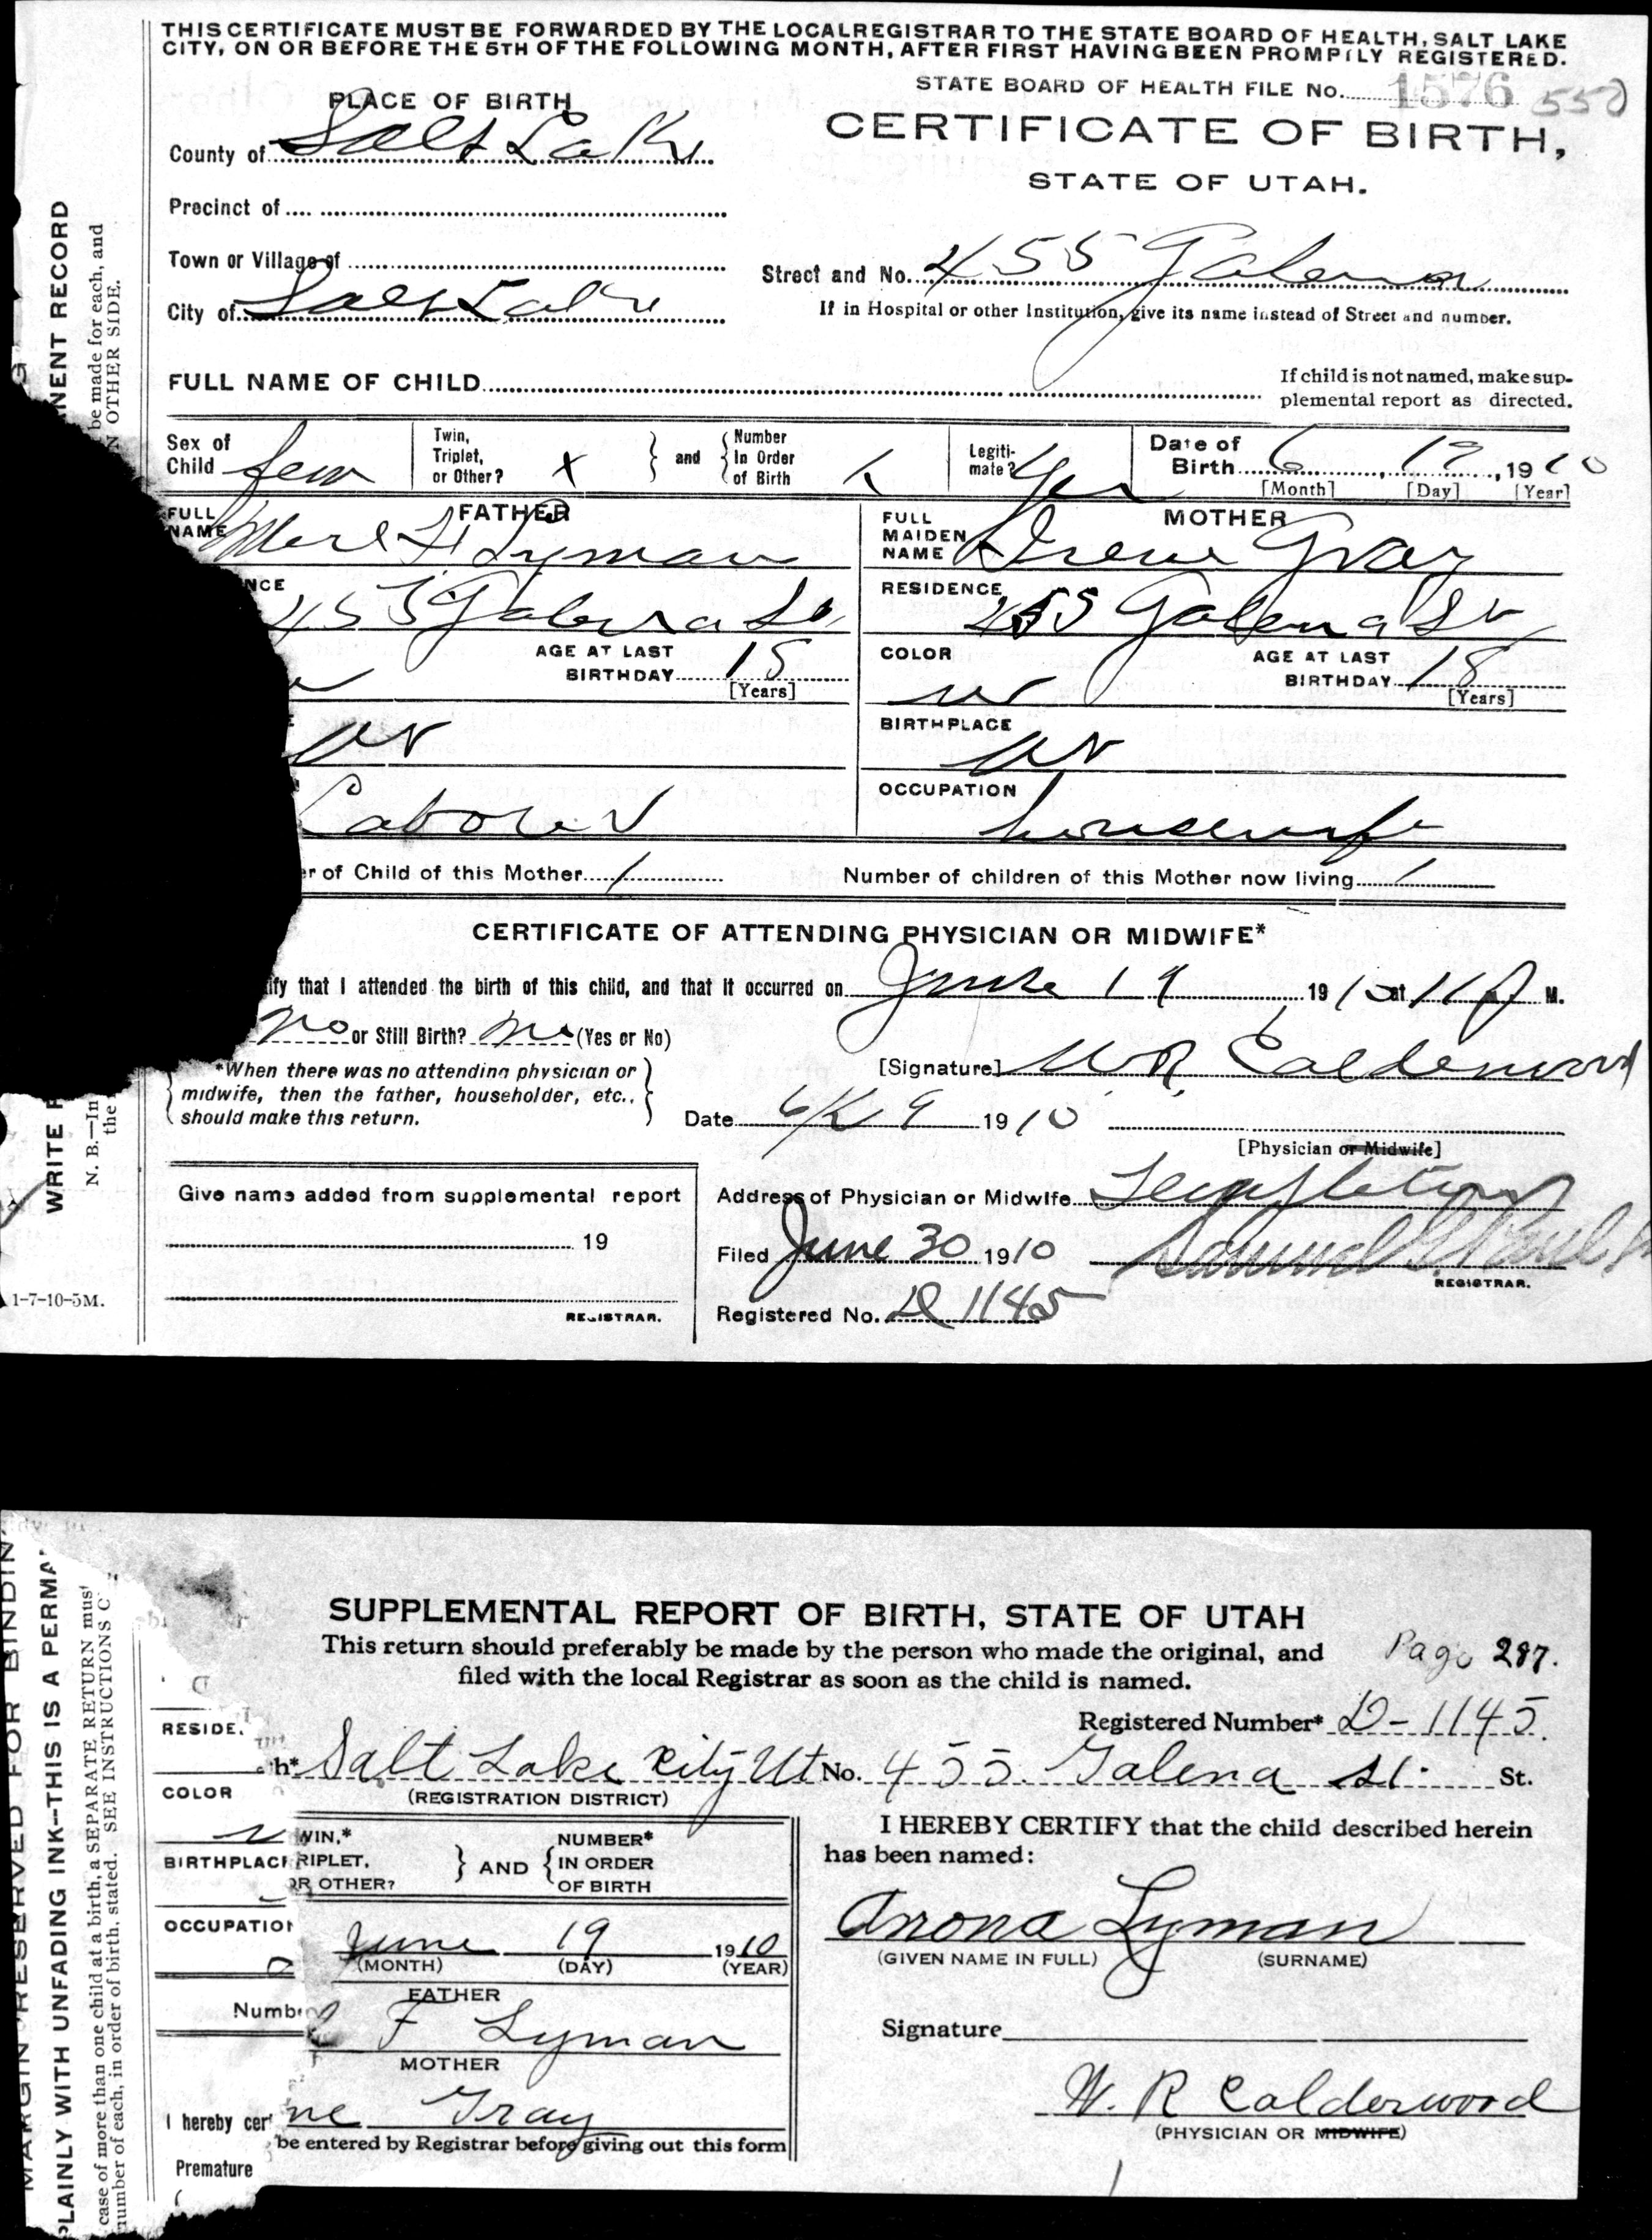 THIS CERTIFICATE MUST BE FORWARDED BY THE LOCAL REGISTRAR TO THE STATE BOARD OF HEALTH, SALT LAKE
CITY, ON OR BEFORE THE 5TH OF THE FOLLOWING MONTH, AFTER FIRST HAVING BEEN PROMPTLY REGISTERED.
STATE BOARD OF HEALTH FILE No. 1576 550
PLACE OF BIRTH
CERTIFICATE OF BIRTH,
STATE OF UTAH.
County of Salt Lake
Precinct of
Town or Village of
Street and No. 455 Galena
City of Salt Lake
If in Hospital or other Institution, give its name instead of Street and number.
FULL NAME OF CHILD
If child is not named, make sup-
plemental report as directed.
Sex of Child fem
Twin, Triplet, or Other? x } and { Number In Order of Birth
Legiti-mate? Yes
Date of Birth 6, 19, 1910
[Month] [Day] [Year]
FATHER
FULL NAME Merl F Lyman
NCE
455 Galena St
AGE AT LAST BIRTHDAY
[Years]
Laborer
MOTHER
FULL MAIDEN NAME Irene Gray
RESIDENCE 455 Galena St
COLOR w
AGE AT LAST BIRTHDAY 18
[Years]
BIRTHPLACE Ut
OCCUPATION housewife
er of Child of this Mother 1
Number of children of this Mother now living 1
CERTIFICATE OF ATTENDING PHYSICIAN OR MIDWIFE*
ify that I attended the birth of this child, and that it occurred on June 19 1910 at 11 P M.
no or Still Birth? no (Yes or No)
*When there was no attending physician or
midwife, then the father, householder, etc.,
should make this return.
[Signature] W.R. Calderwood
Date 1910
[Physician or Midwife]
Give name added from supplemental report
19
REGISTRAR.
Address of Physician or Midwife Templeton
Filed June 30 1910
REGISTRAR.
Registered No. D 1145
1-7-10-5M.
NENT RECORD
be made for each, and
N OTHER SIDE.
WRITE P
N. B.—In
the
SUPPLEMENTAL REPORT OF BIRTH, STATE OF UTAH
This return should preferably be made by the person who made the original, and
filed with the local Registrar as soon as the child is named.
Page 287.
Registered Number* D-1145
th* Salt Lake City Ut No. 455 Galena St. St.
(REGISTRATION DISTRICT)
WIN,* RIPLET, OR OTHER? } AND { NUMBER* IN ORDER OF BIRTH
June 19 1910
(MONTH) (DAY) (YEAR)
FATHER
l F Lyman
MOTHER
ne Gray
be entered by Registrar before giving out this form
I HEREBY CERTIFY that the child described herein
has been named:
Arrona Lyman
(GIVEN NAME IN FULL) (SURNAME)
Signature
W. R Calderwood
(PHYSICIAN OR MIDWIFE)
RESIDE
COLOR
BIRTHPLACE
OCCUPATION
Numb
I hereby cer
Premature
MARGIN RESERVED FOR BINDIN
PLAINLY WITH UNFADING INK—THIS IS A PERMA
case of more than one child at a birth, a SEPARATE RETURN must
number of each, in order of birth, stated. SEE INSTRUCTIONS